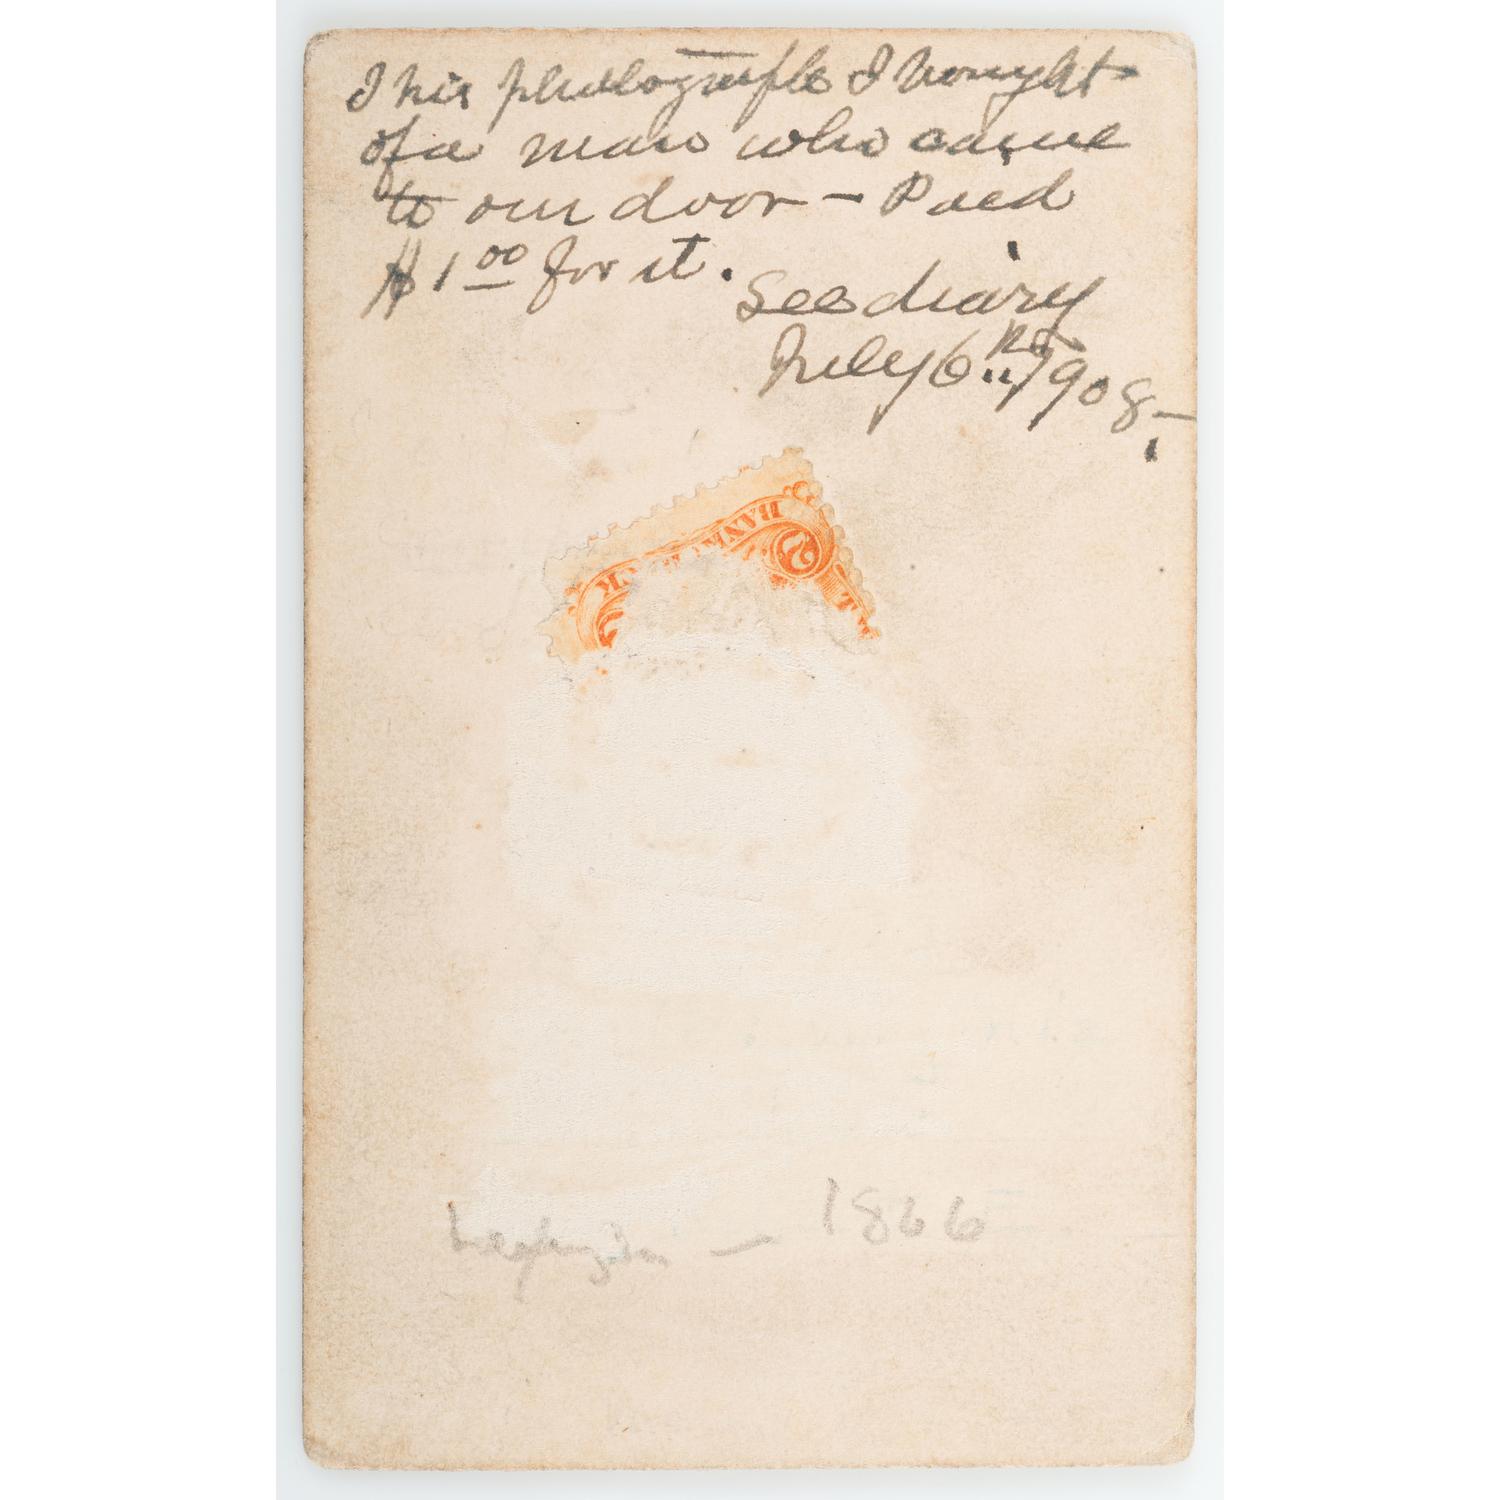 This photograph I bought
of a man who came
to our door – Paid
$1 00 for it.
See diary
July 6th 1908
BANK CK
2
– 1866